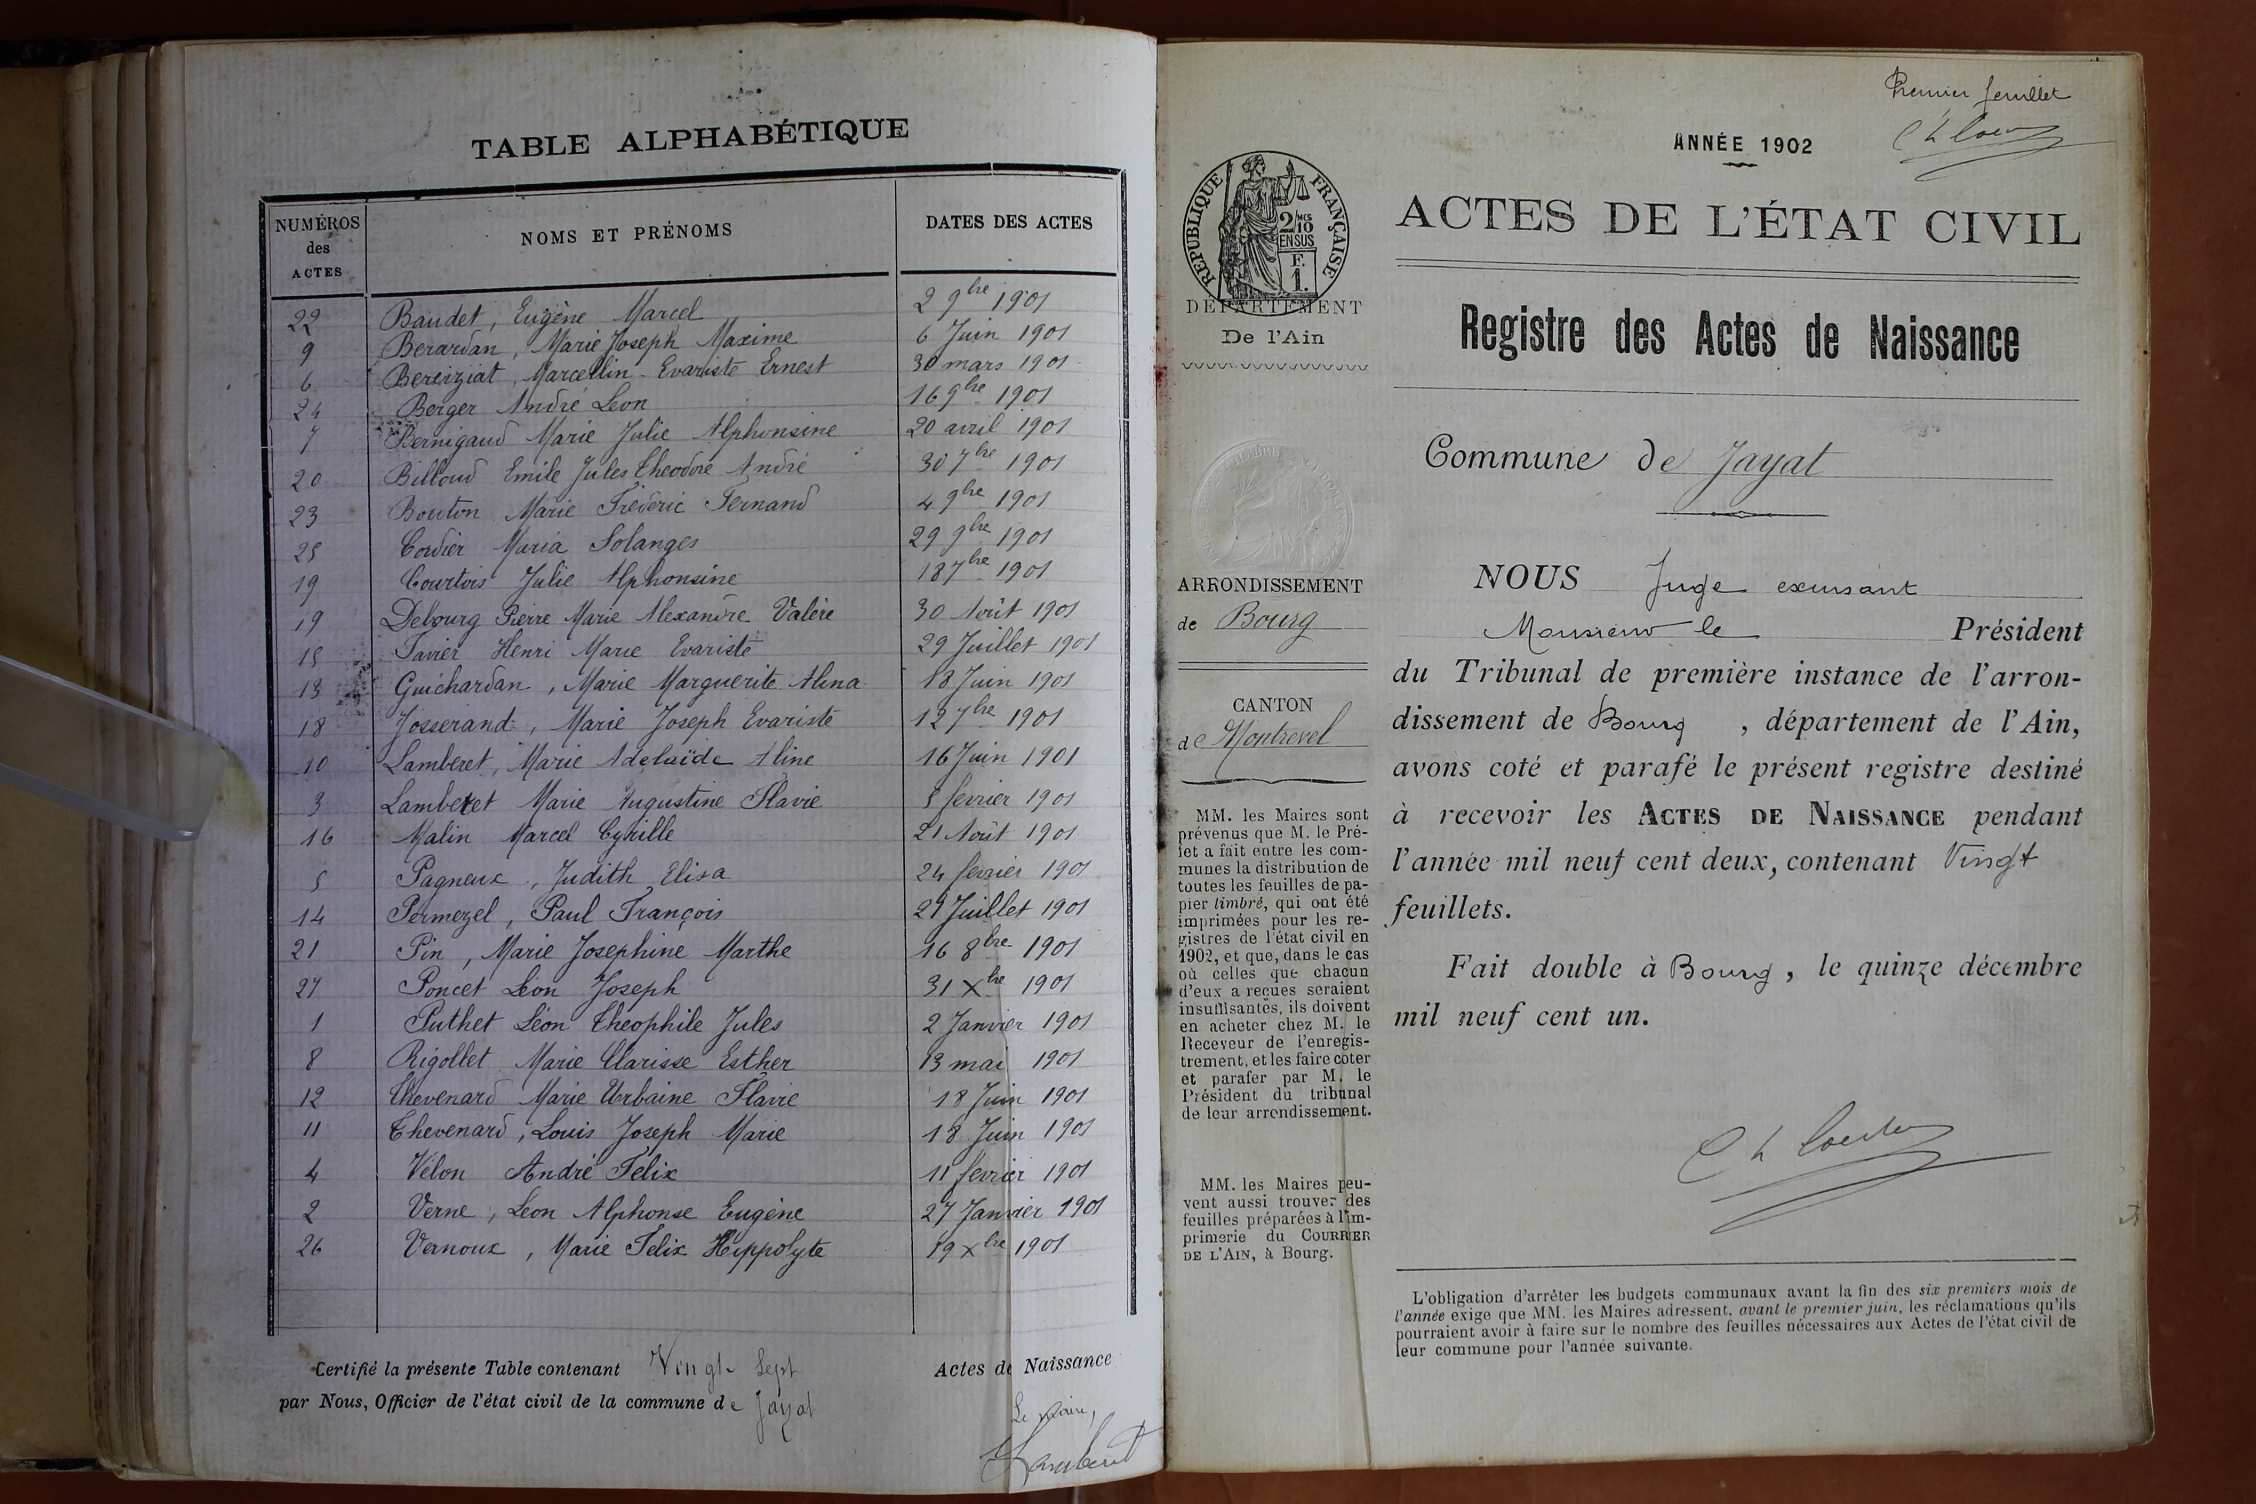 TABLE ALPHABÉTIQUE
NUMÉROS des ACTES NOMS ET PRÉNOMS DATES DES ACTES
22 Baudet, Eugène Marcel 2 9bre 1901
9 Berardan, Marie Joseph Maxime 6 Juin 1901
6 Bereiziat, Marcellin Evariste Ernest 30 mars 1901
24 Berger André Leon 16 9bre 1901
7 Bernigaud Marie Julie Alphonsine 20 avril 1901
20 Billoud Emile Jules Theodore André 30 7bre 1901
23 Bouton Marie Fréderic Fernand 4 9bre 1901
25 Cordier Maria Solanges 29 9bre 1901
19 Courtois Julie Alphonsine 18 7bre 1901
19 Debourg Pierre Marie Alexandre Valère 30 Août 1901
15 Favier Henri Marie Evariste 29 Juillet 1901
13 Guichardan, Marie Marguerite Alina 18 Juin 1901
18 Josserand, Marie Joseph Evariste 12 7bre 1901
10 Lamberet, Marie Adelaïde Aline 16 Juin 1901
3 Lamberet Marie Augustine Flavie 5 février 1901
16 Malin Marcel Cyrille 21 Août 1901
5 Pagneux, Judith Elisa 24 fevrier 1901
14 Permezel, Paul François 21 Juillet 1901
21 Pin, Marie Josephine Marthe 16 8bre 1901
27 Poncet Léon Joseph 31 Xbre 1901
1 Puthet Léon Theophile Jules 2 Janvier 1901
8 Rigollet Marie Clarisse Esther 13 mai 1901
12 Thevenard Marie Urbaine Flavie 18 Juin 1901
11 Thevenard, Louis Joseph Marie 18 Juin 1901
4 Vélon André Félix 11 février 1901
2 Verne, Leon Alphonse Eugène 27 Janvier 1901
26 Vernoux, Marie Felix Hippolyte 19 Xbre 1901
Certifié la présente Table contenant Vingt-Sept Actes de Naissance
par Nous, Officier de l'état civil de la commune de Jayat
Le Maire,
Premier feuillet
ANNÉE 1902
RÉPUBLIQUE FRANÇAISE
2/10 MES
EN SUS
F.
1.
DÉPARTEMENT
De l'Ain
ACTES DE L'ÉTAT CIVIL
Registre des Actes de Naissance
Commune de Jayat
ARRONDISSEMENT
de Bourg
CANTON
de Montrevel
MM. les Maires sont
prévenus que M. le Pré-
fet a fait entre les com-
munes la distribution de
toutes les feuilles de pa-
pier timbré, qui ont été
imprimées pour les re-
gistres de l'état civil en
1902, et que, dans le cas
où celles que chacun
d'eux a reçues seraient
insuffisantes, ils doivent
en acheter chez M. le
Receveur de l'enregis-
trement, et les faire coter
et parafer par M. le
Président du tribunal
de leur arrondissement.
MM. les Maires peu-
vent aussi trouver des
feuilles préparées à l'im-
primerie du COURRIER
DE L'AIN, à Bourg.
NOUS Juge exerçant
Monsieur le Président
du Tribunal de première instance de l'arron-
dissement de Bourg, département de l'Ain,
avons coté et parafé le présent registre destiné
à recevoir les ACTES DE NAISSANCE pendant
l'année mil neuf cent deux, contenant Vingt
feuillets.
Fait double à Bourg, le quinze décembre
mil neuf cent un.
L'obligation d'arrêter les budgets communaux avant la fin des six premiers mois de
l'année exige que MM. les Maires adressent, avant le premier juin, les réclamations qu'ils
pourraient avoir à faire sur le nombre des feuilles nécessaires aux Actes de l'état civil de
leur commune pour l'année suivante.